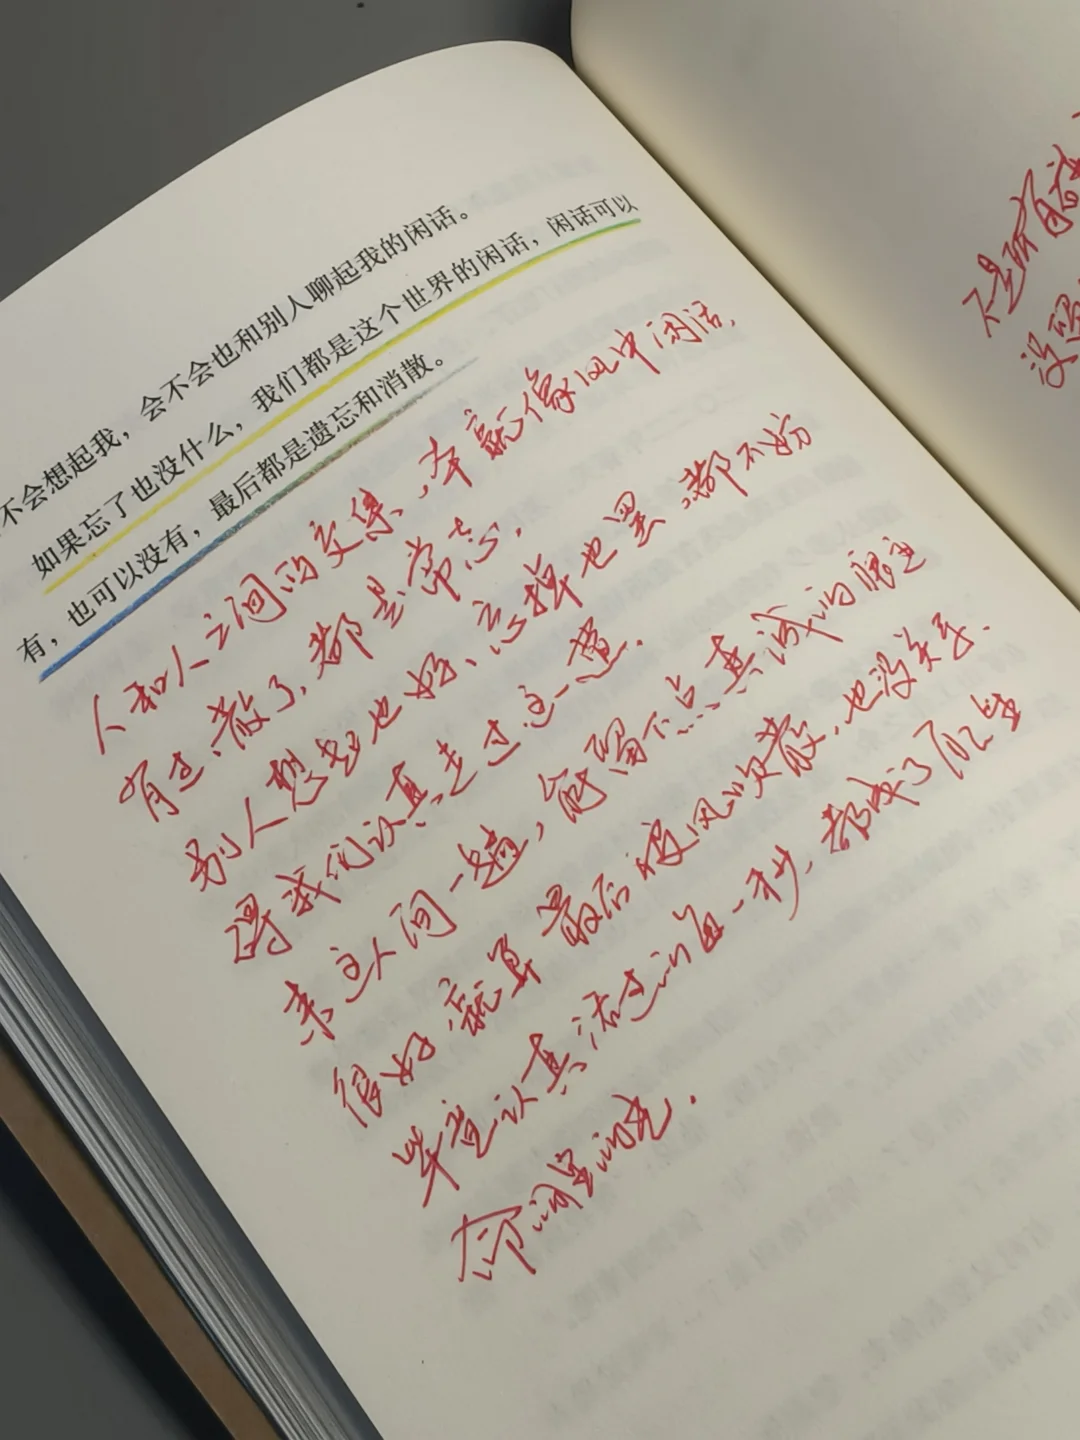 不会想起我，会不会也和别人聊起我的闲话。
如果忘了也没什么，我们都是这个世界的闲话，闲话可以
有，也可以没有，最后都是遗忘和消散。
人和人之间的交集，本就像风中闲话，
有过、散了，都是常态，
别人想起也好、忘掉也罢，都不妨
碍我们认真走过这一遭．
来这人间一趟，能留下点真诚的痕迹
很好，就算最后被风吹散，也没关系．
毕竟认真活过的每一秒，都成了原生
命里的光．
不是所有
没留